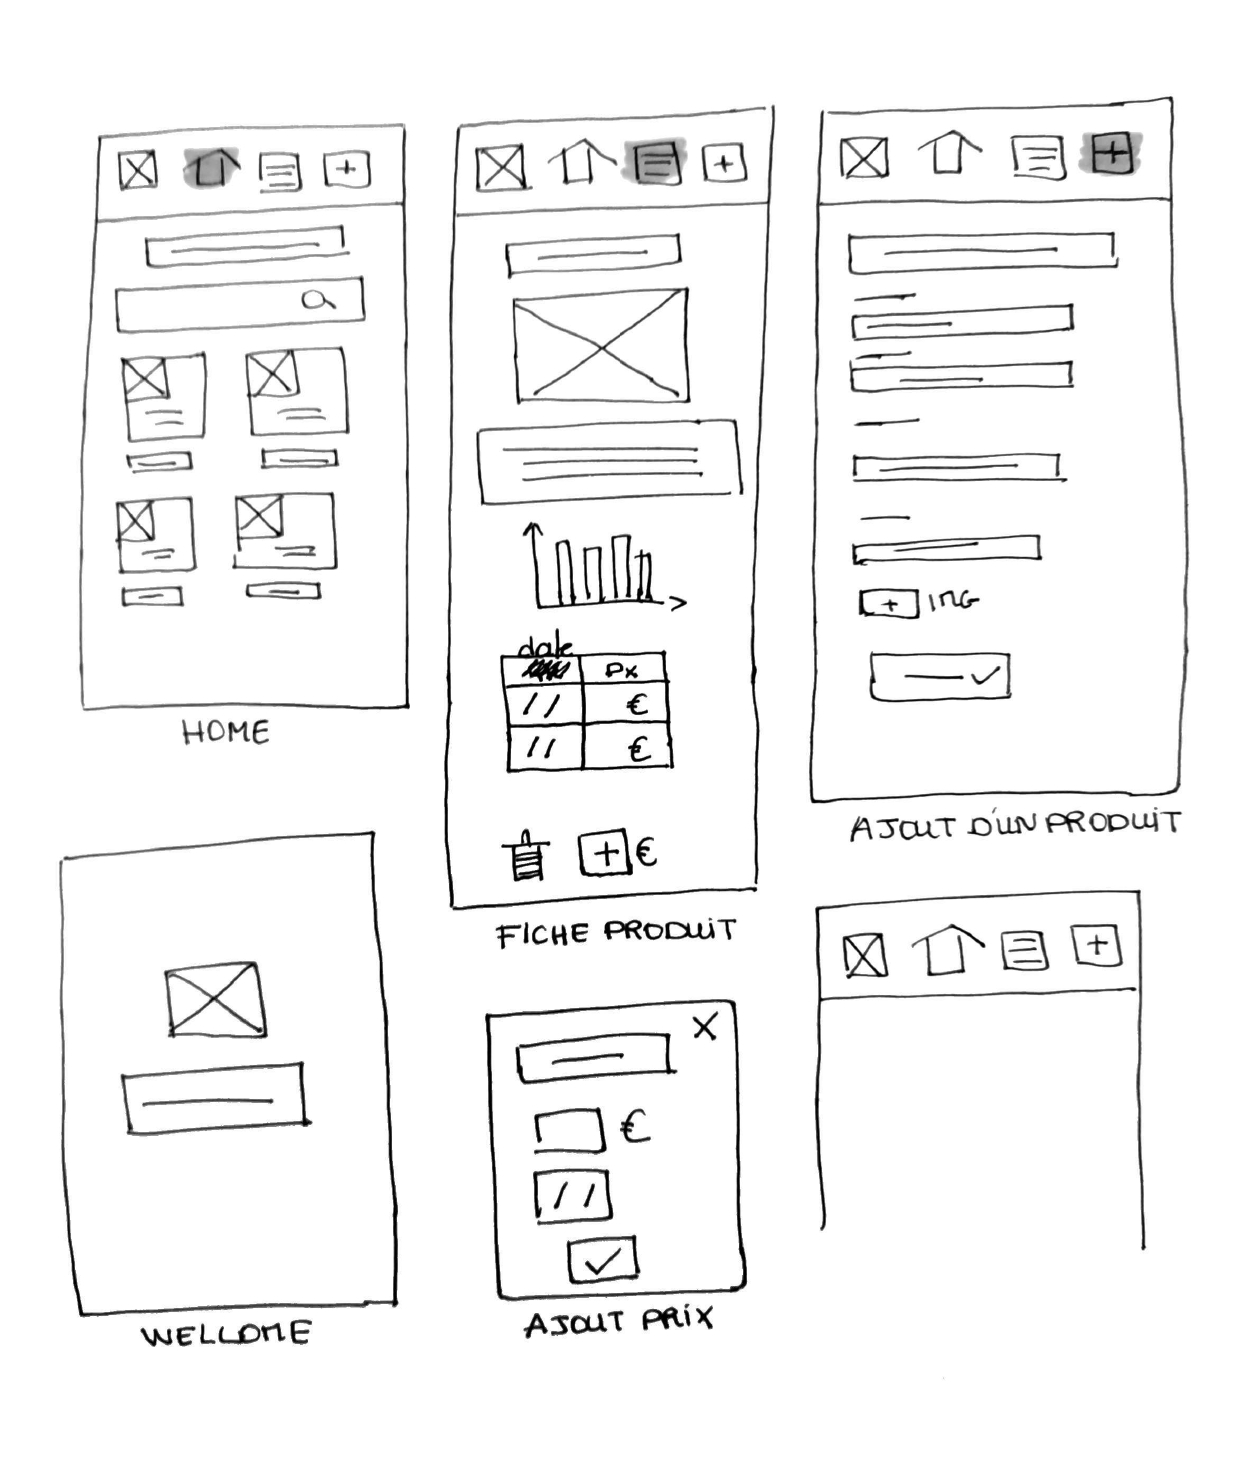 HOME
date
Px
/ /
€
/ /
€
+ €
FICHE PRODUIT
+ IMG
AJOUT D'UN PRODUIT
WELLOME
X
€
/ /
AJOUT PRIX